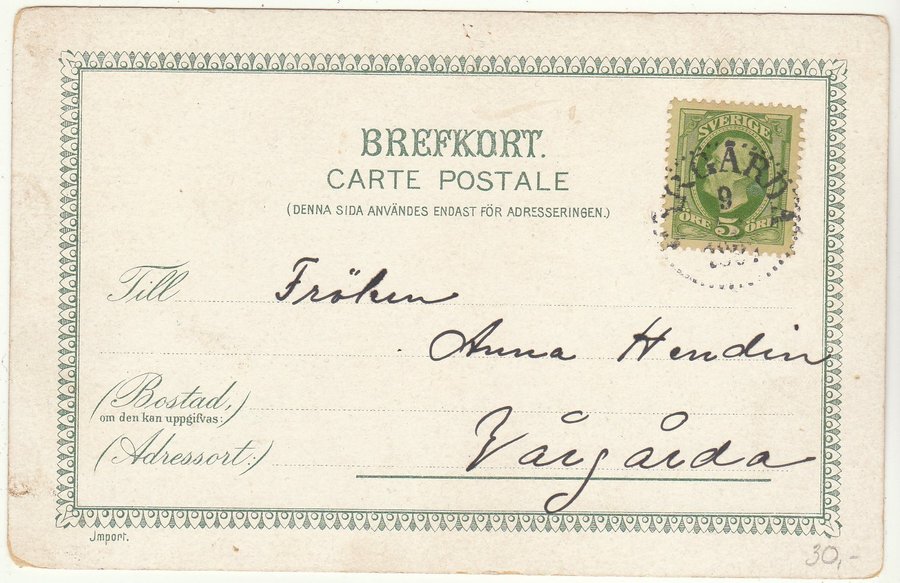 BREFKORT.
CARTE POSTALE
(DENNA SIDA ANVÄNDES ENDAST FÖR ADRESSERINGEN.)
SVERIGE
RGÅRDA
9
ÖRE 5 ÖRE
Till Fröken
Anna Hendin
(Bostad,)
om den kan uppgifvas:
(Adressort:) Vårgårda
Import.
30,-